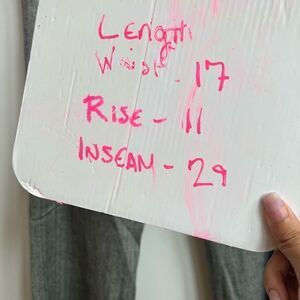 Length
Waist - 17
Rise - 11
Inseam - 29